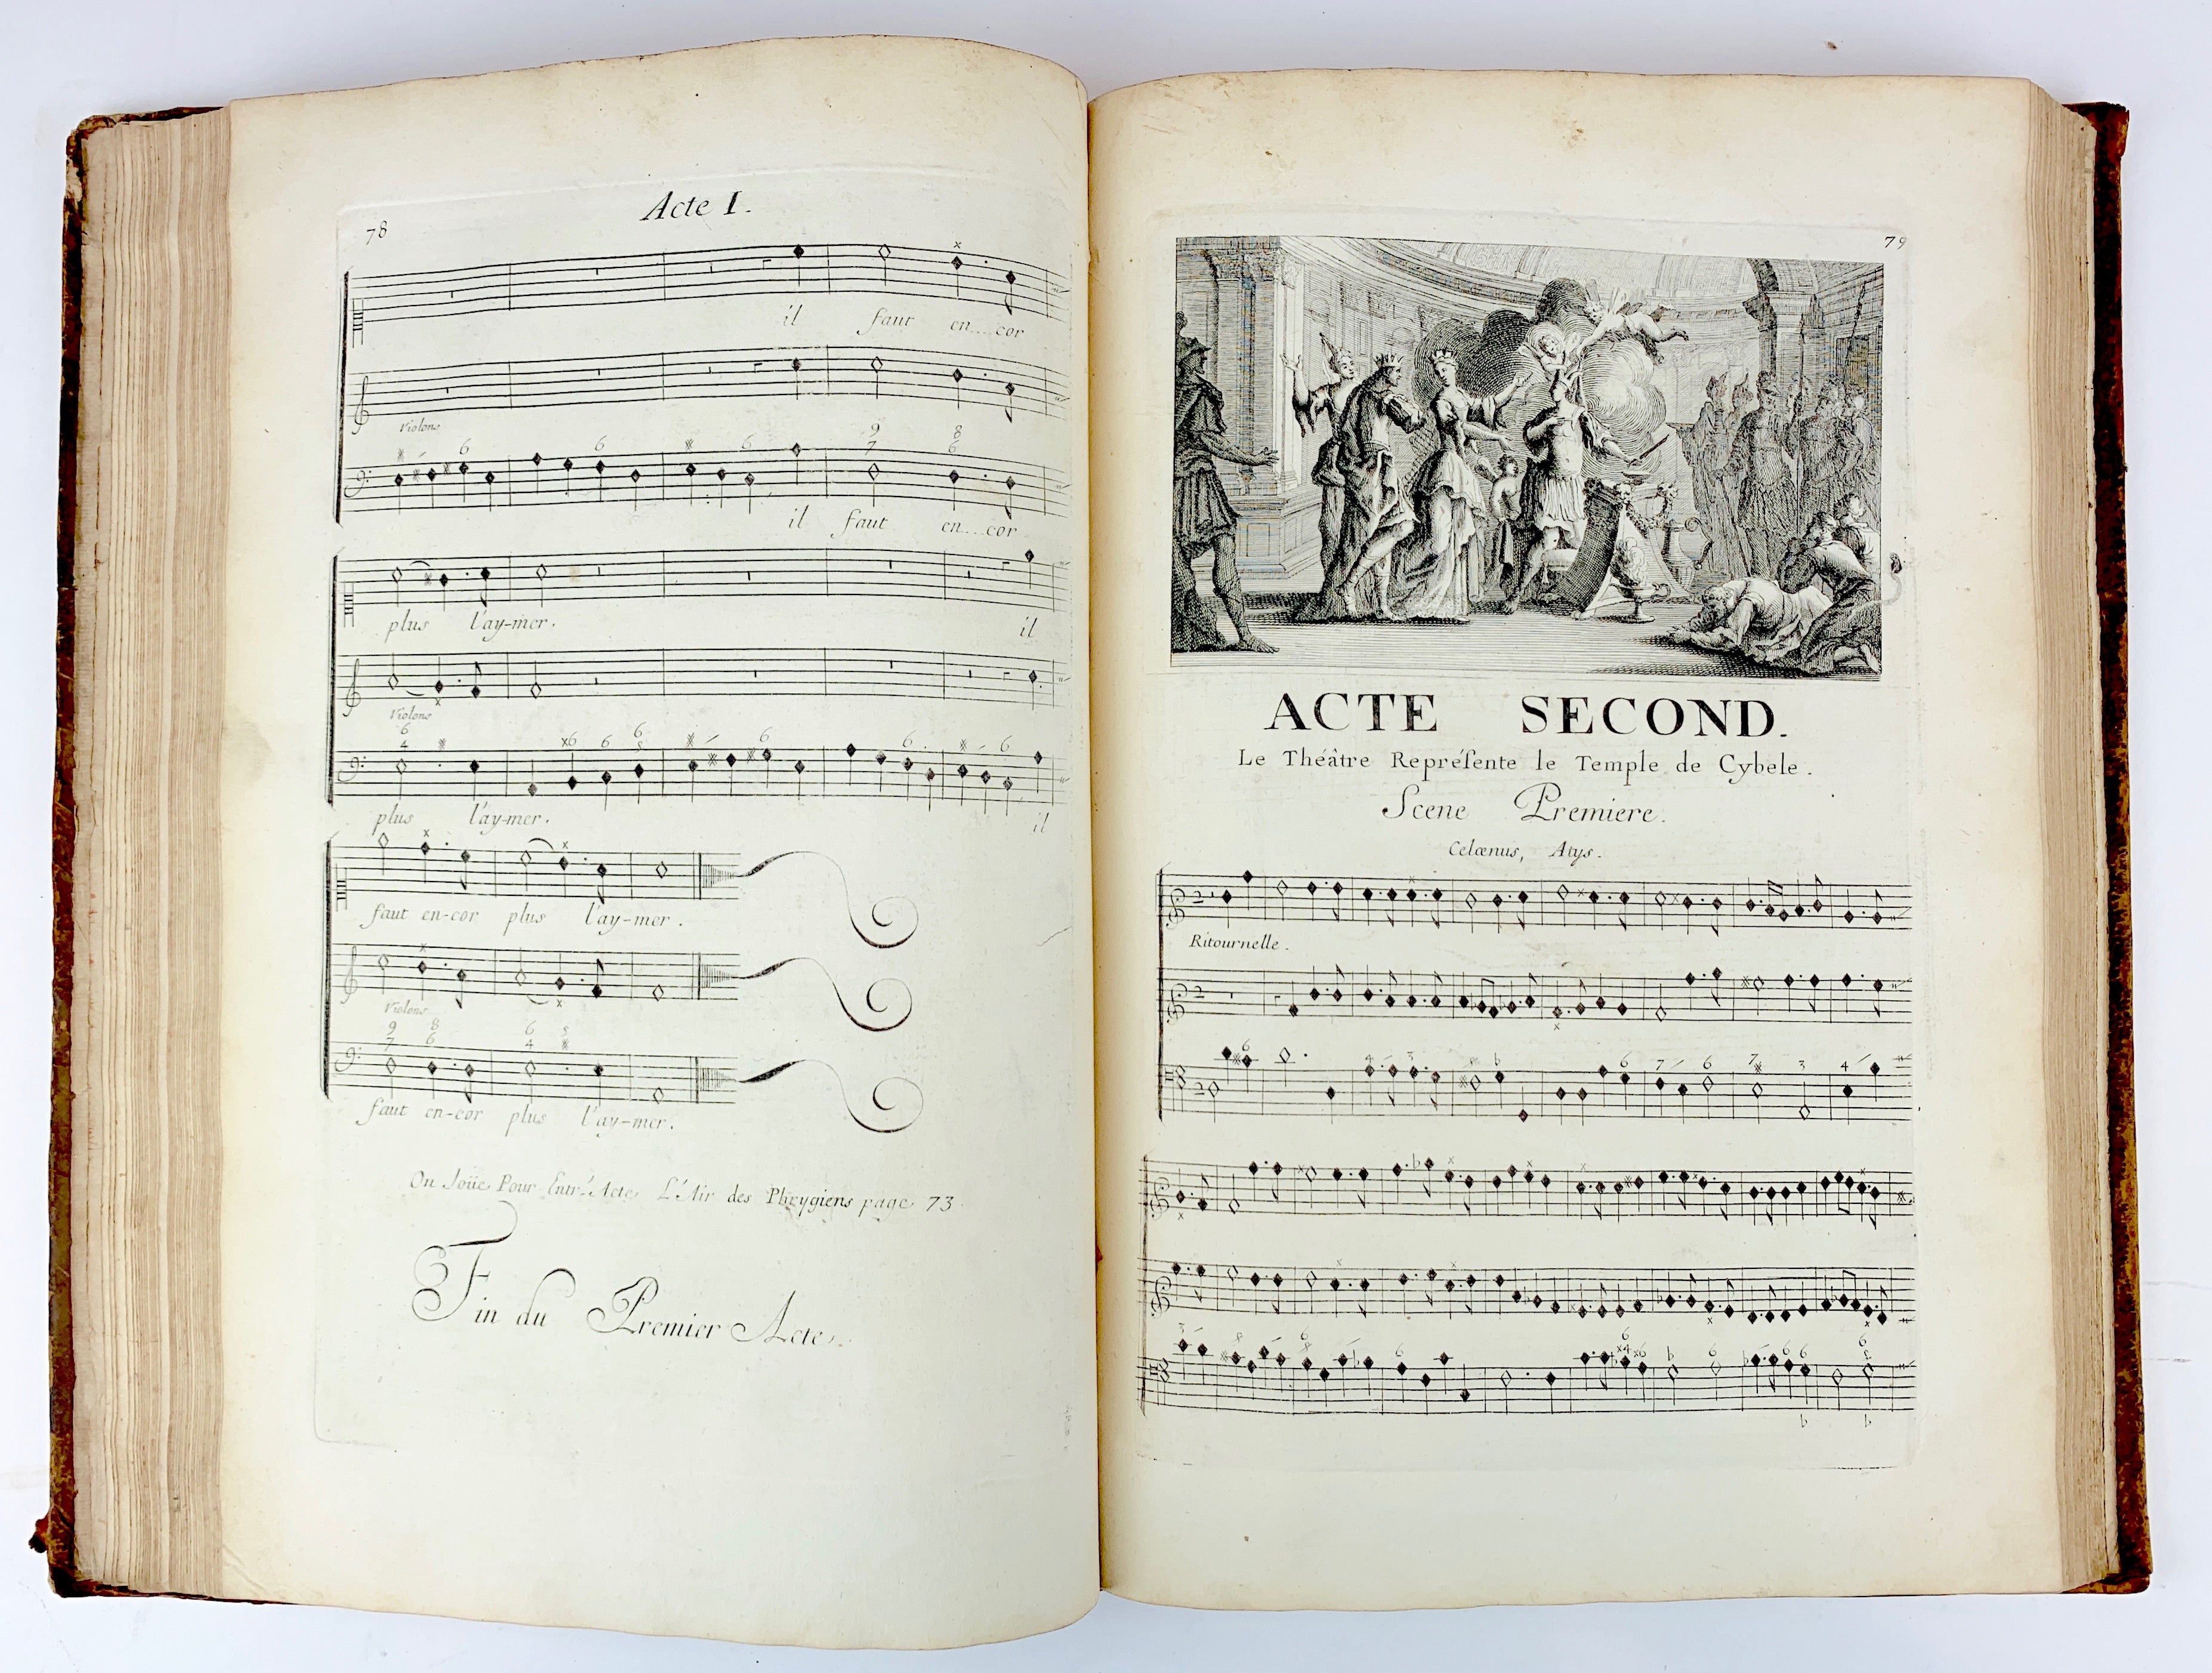 78
Acte I.
il faut en...cor
Violons
il faut en...cor
plus l'ay-mer. il
Violons
plus l'ay-mer. il
faut en-cor plus l'ay-mer.
Violons
faut en-cor plus l'ay-mer.
On Joüe Pour Entr'Acte L'Air des Phrygiens page 73
Fin du Premier Acte.
79
ACTE SECOND.
Le Théâtre Repréſente le Temple de Cybele.
Scene Premiere.
Celœnus, Atys.
Ritournelle.